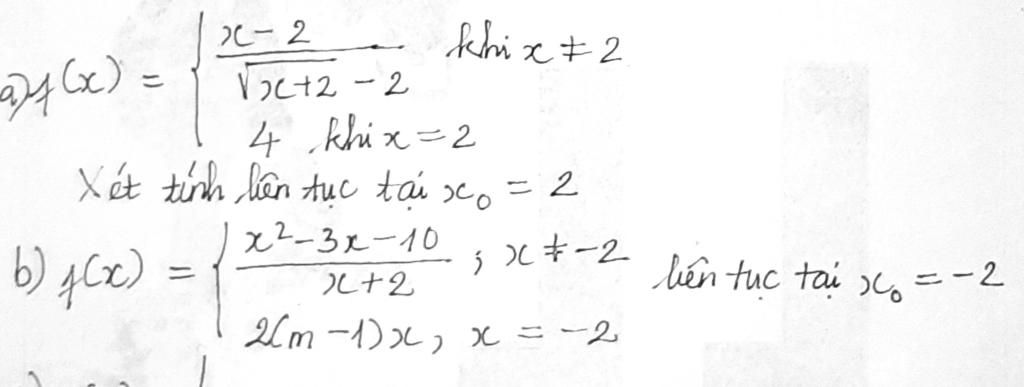 a) f(x) = { (x - 2)/(√(x+2) - 2) khi x ≠ 2
4 khi x = 2
Xét tính liên tục tại x₀ = 2
b) f(x) = { (x² - 3x - 10)/(x + 2) ; x ≠ -2 liên tục tại x₀ = -2
2(m - 1)x, x = -2